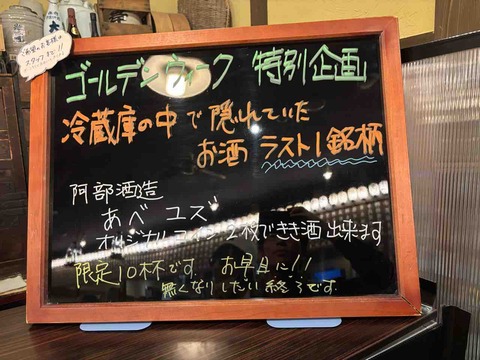 ご希望のお客様は
スタッフまで!!
ゴールデンウィーク 特別企画
冷蔵庫の中で隠れていた
お酒 ラスト1銘柄
阿部酒造
あべ ユズ
オリジナルコイン2枚できき酒出来ます
限定10杯です お早目に!!
無くなりしだい終了です.